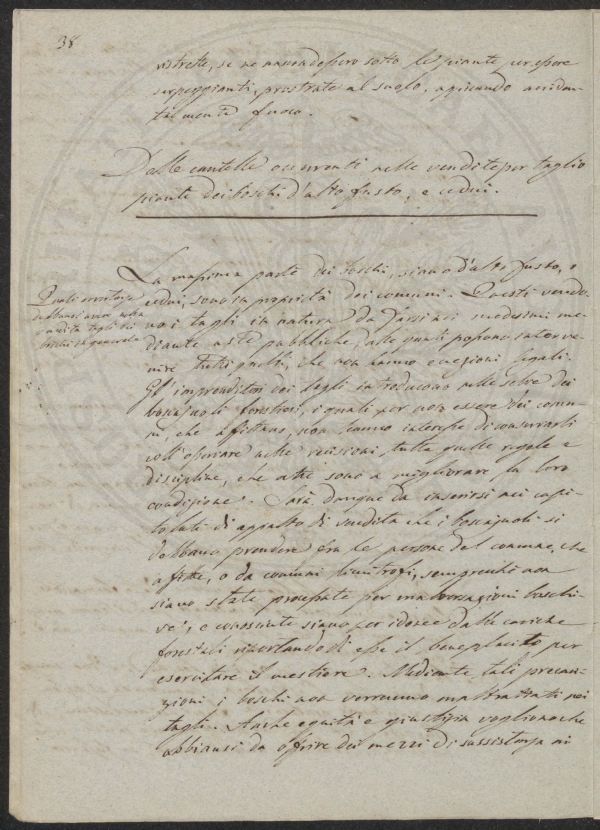 38
ristrette, se ne nascondessero sotto le piante per essere
serpeggianti, prostrate al suolo, apiccando acciden-
talmente fuoco.
Delle cautelle occorrenti nelle vendite per taglio
piante dei boschi d'alto fusto, e cedui.
Quali avvertenze
debbansi avere nella
vendita tagli dei
boschi in generale
La massima parte dei boschi, siano d'alto fusto, o
cedui, sono in proprietà dei comuni. Questi vendo-
no i tagli in natura da farsi nei medesimi me-
diante aste pubbliche, alle quali possono interve-
nire tutti quelli, che non hanno eccezioni legali.
Gl'imprenditori dei tagli introducono nelle selve dei
boscajuoli forestieri, i quali per non essere dei comu-
ni, che affittano, non hanno interesse di conservarli
coll'osservare nelle recisioni, tutte quelle regole e
discipline, che atte sono a migliorare la loro
condizione. Sarà dunque da inserirsi nei capi-
tolati di appalto di vendita che i boscajuoli si
debbano prendere fra le persone del comune, che
affitta, o da comuni limitrofi, sempreché non
siano state processate per malversazioni boschi-
ve, e conosciute siano per idonee dalle cariche
forestali riportando di esse il beneplacito per
esercitare il mestiere. Mediante tali precau-
zioni i boschi non verranno maltrattati nei
tagli. Anche equità e giustizia vogliono che
abbiansi da offrire dei mezzi di sussistenza ai